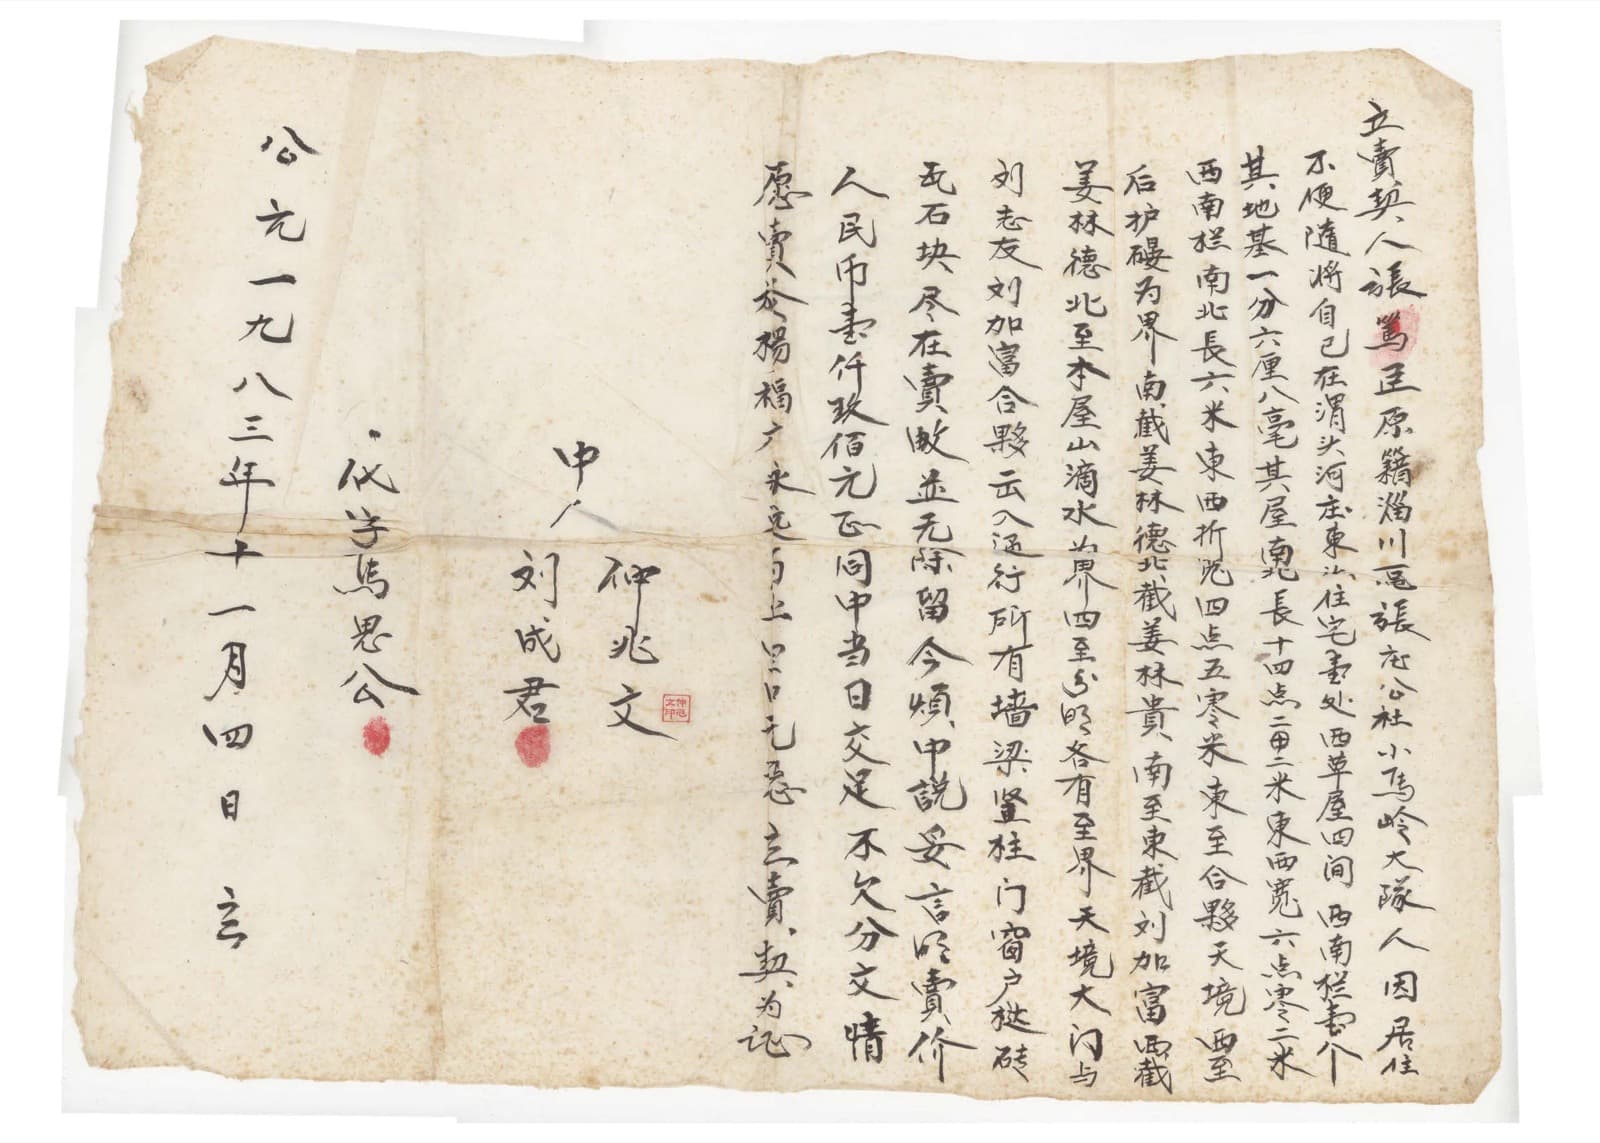 立賣契人張篤匡原籍淄川區張庄公社小馬岭大隊人因居住
不便隨將自己在渭头河庄東头住宅壹处西草屋四间西南栏壹个
其地基一分六厘八毫其屋南北長十四点二米東西寬六点零二米
西南栏南北長六米東西折宽四点五零米東至合夥天境西至
后护碾为界南截姜林德北截姜林貴南至東截刘加富西截
姜林德北至本屋山滴水为界四至分明各有至界天境大门与
刘志友刘加富合夥出入通行所有墙梁竖柱门窗户挞砖
瓦石块尽在賣數並无除留今煩中説妥言明賣价
人民币壹仟玖佰元正同中当日交足不欠分文情
愿賣於楊福广永远为上空口无憑立賣契为证
中人 仲兆文
刘成君
代字馬思公
公元一九八三年十一月四日立